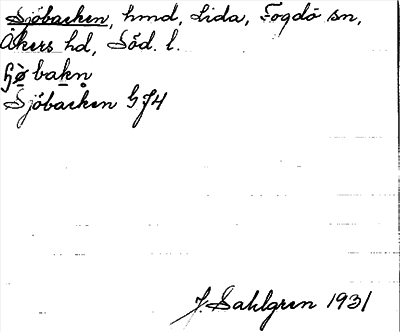 Sjöbacken, hmd, Lida, Fogdö sn,
Åkers hd, Söd. l.
Sjöbacken G J4
J. Sahlgren 1931